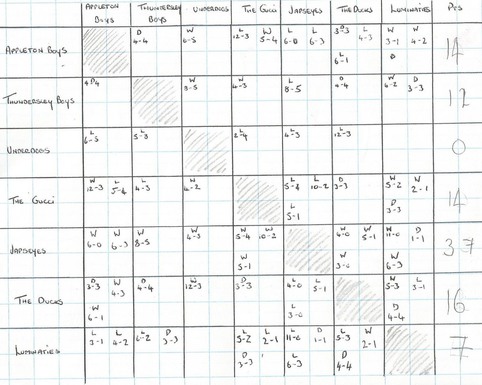 APPLETON BOYS THUNDERSLEY BOYS UNDERDOGS THE GUCCI JAPSEYES THE DUCKS LUMINATIES PTS
APPLETON BOYS D 4-4 W 6-5 L 12-3 W 5-4 L 6-0 L 6-3 3D3 L 4-3 L 6-1 W 3-1 W 4-2 14
THUNDERSLEY BOYS 4D4 W W 4-3 L 8-5 D 4-4 W 6-2 D 3-3 12
UNDERDOGS L 6-5 L L L 4-3 L 12-3 0
THE GUCCI W 12-3 L 5-4 L 4-3 W L 5-4 L 10-2 L 5-1 D 3-3 W 5-2 W 2-1 D 3-3 14
JAPSEYES W 6-0 W 6-3 W 8-5 W 4-3 W 5-4 W 10-2 W 5-1 W 4-0 W 5-1 W 3-0 W 11-0 D 1-1 W 6-3 37
THE DUCKS D 3-3 W 4-3 W 6-1 D 4-4 W 12-3 D 3-3 L 4-0 L 5-1 L 3-0 W 5-3 L D 4-4 16
LUMINATIES L 3-1 L 4-2 L 6-2 D 3-3 L 5-2 L 2-1 D 3-3 L 11-0 D 1-1 L 6-3 L 5-3 W 2-1 D 4-4 7